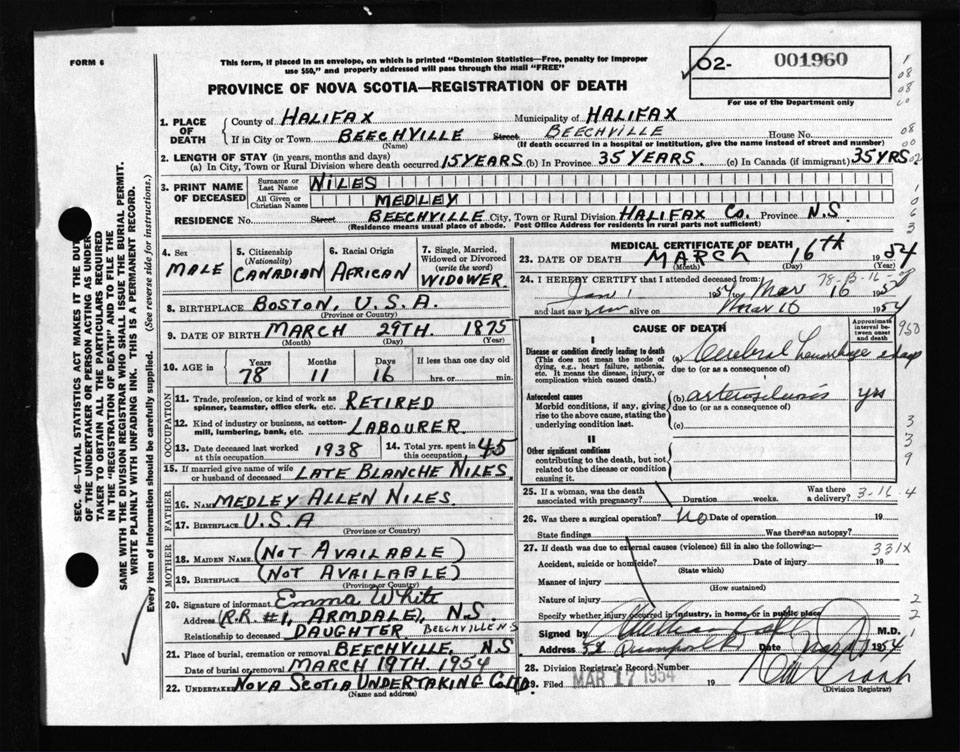 FORM 6
This form, if placed in an envelope, on which is printed "Dominion Statistics—Free, penalty for improper
use $50," and properly addressed will pass through the mail "FREE"
02- 001960
PROVINCE OF NOVA SCOTIA—REGISTRATION OF DEATH
For use of the Department only
1. PLACE OF DEATH
County of HALIFAX Municipality of HALIFAX
If in City or Town BEECHVILLE Street BEECHVILLE House No.
(Name) (If death occurred in a hospital or institution, give the name instead of street and number)
2. LENGTH OF STAY (in years, months and days)
(a) In City, Town or Rural Division where death occurred 15 YEARS (b) In Province 35 YEARS. (c) In Canada (if immigrant) 35 YRS
3. PRINT NAME OF DECEASED
Surname or Last Name NILES
All Given or Christian Names MEDLEY
RESIDENCE No. Street BEECHVILLE City, Town or Rural Division HALIFAX Co. Province N.S.
(Residence means usual place of abode. Post Office Address for residents in rural parts not sufficient)
4. Sex MALE
5. Citizenship (Nationality) CANADIAN
6. Racial Origin AFRICAN
7. Single, Married, Widowed or Divorced (write the word) WIDOWER.
8. BIRTHPLACE BOSTON, U.S.A.
(Province or Country)
9. DATE OF BIRTH MARCH 29TH. 1875
(Month) (Day) (Year)
10. AGE in Years 78 Months 11 Days 16 If less than one day old hrs. or min.
OCCUPATION
11. Trade, profession, or kind of work as spinner, teamster, office clerk, etc. RETIRED
12. Kind of industry or business, as cotton-mill, lumbering, bank, etc. LABOURER.
13. Date deceased last worked at this occupation 1938
14. Total yrs. spent in this occupation 45
15. If married give name of wife or husband of deceased LATE BLANCHE NILES.
FATHER
16. Name MEDLEY ALLEN NILES.
17. Birthplace U.S.A
(Province or Country)
MOTHER
18. Maiden Name (NOT AVAILABLE)
19. Birthplace (NOT AVAILABLE)
(Province or Country)
20. Signature of informant Emma White
Address (R.R. #1, ARMDALE), N.S.
Relationship to deceased DAUGHTER. BEECHVILLE N S
21. Place of burial, cremation or removal BEECHVILLE, N.S
Date of burial or removal MARCH 19TH. 1954
22. Undertaker NOVA SCOTIA UNDERTAKING Co LTD.
(Name and address)
MEDICAL CERTIFICATE OF DEATH
23. DATE OF DEATH MARCH 16TH 1954
(Month) (Day) (Year)
78-B-16-
24. I HEREBY CERTIFY that I attended deceased from:
Jan 1 1954 to Mar 16 1954
and last saw him alive on Mar 16 1954
CAUSE OF DEATH
Approximate interval between onset and death
I
Disease or condition directly leading to death
(This does not mean the mode of dying, e.g., heart failure, asthenia, etc. It means the disease, injury, or complication which caused death.)
(a) Cerebral hemorrhage days
due to (or as a consequence of)
Antecedent causes
Morbid conditions, if any, giving rise to the above cause, stating the underlying condition last.
(b) yrs
due to (or as a consequence of)
(c)
II
Other significant conditions
contributing to the death, but not related to the disease or condition causing it.
25. If a woman, was the death associated with pregnancy? Duration weeks. Was there a delivery? 3-16-4
26. Was there a surgical operation? no Date of operation 19
State findings Was there an autopsy?
27. If death was due to external causes (violence) fill in also the following: 331X
Accident, suicide or homicide? Date of injury 19
(State which)
Manner of injury
(How sustained)
Nature of injury
Specify whether injury occurred in industry, in home, or in public place
Signed by M.D.
Address 52 Date 1954
28. Division Registrar's Record Number
29. Filed MAR 17 1954 19
(Division Registrar)
SEC. 46—VITAL STATISTICS ACT MAKES IT THE DUTY
OF THE UNDERTAKER OR PERSON ACTING AS UNDER-
TAKER TO OBTAIN ALL THE PARTICULARS REQUIRED
IN THE "REGISTRATION OF DEATH" AND TO FILE THE
SAME WITH THE DIVISION REGISTRAR WHO SHALL ISSUE THE BURIAL PERMIT.
WRITE PLAINLY WITH UNFADING INK. THIS IS A PERMANENT RECORD.
Every item of information should be carefully supplied. (See reverse side for instructions.)